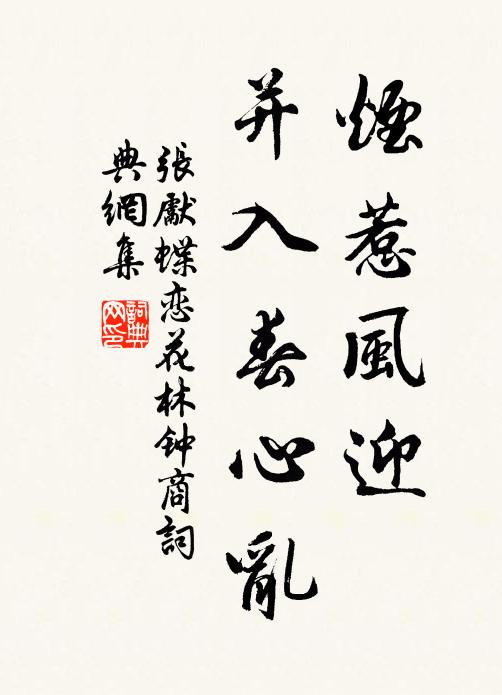 煙惹風迎
并入春心亂
張獻蝶恋花林钟商詞
典網集
詞典
网印